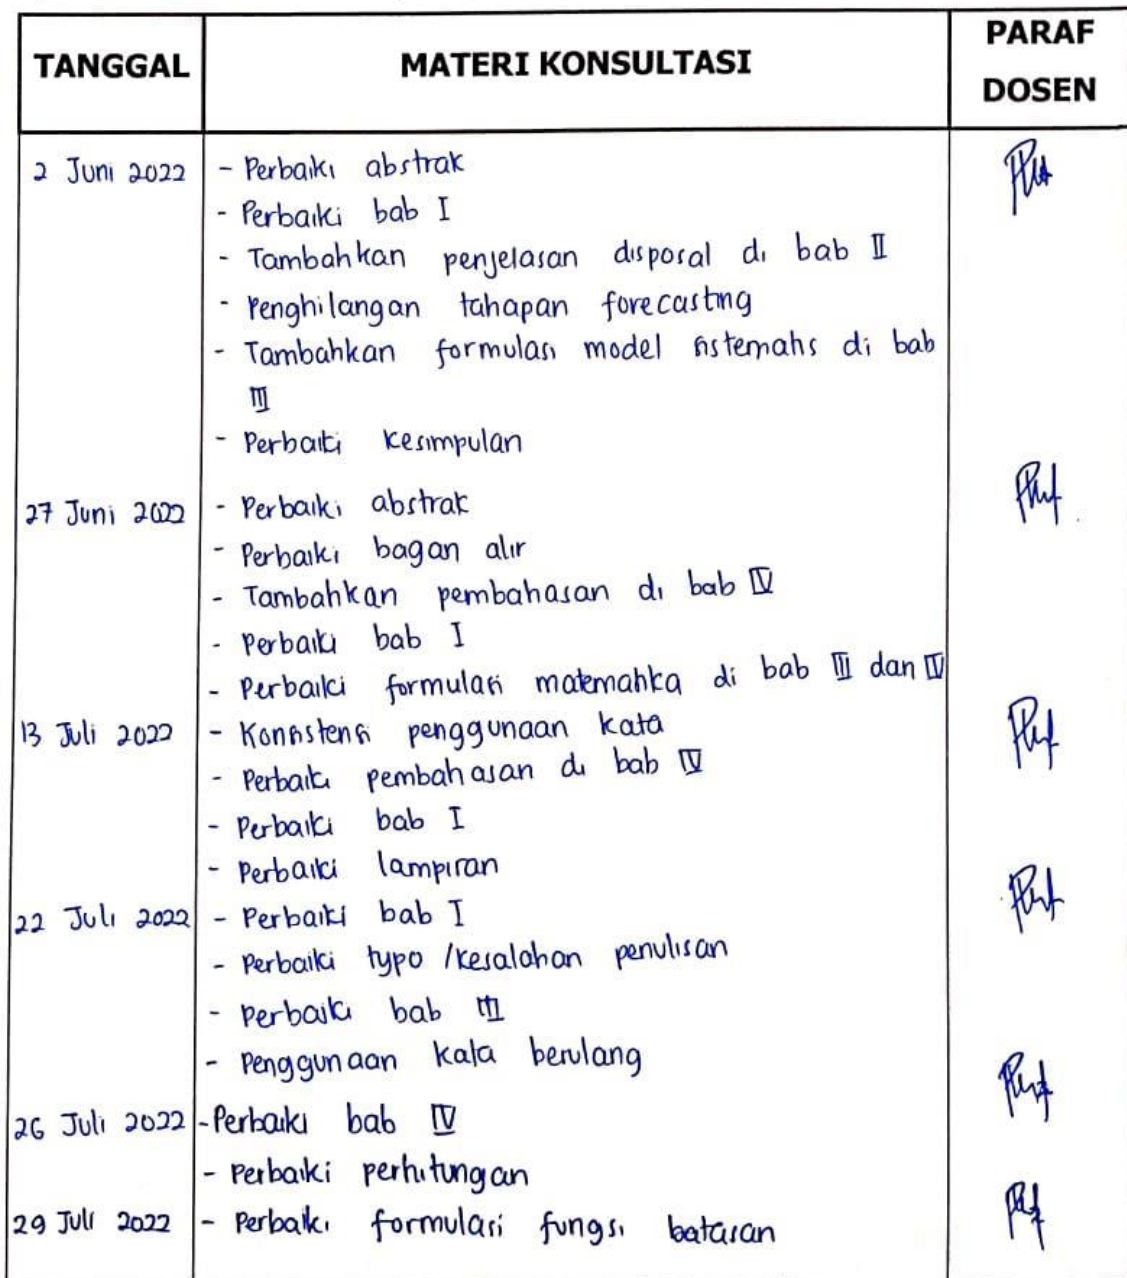 TANGGAL MATERI KONSULTASI PARAF DOSEN
2 Juni 2022 - Perbaiki abstrak
- Perbaiki bab I
- Tambahkan penjelasan disposal di bab II
- Penghilangan tahapan forecasting
- Tambahkan formulasi model sistematis di bab
III
- Perbaiki kesimpulan
27 Juni 2022 - Perbaiki abstrak
- Perbaiki bagan alir
- Tambahkan pembahasan di bab IV
- Perbaiki bab I
- Perbaiki formulasi matematika di bab III dan IV
13 Juli 2022 - Konsistensi penggunaan kata
- Perbaiki pembahasan di bab IV
- Perbaiki bab I
- Perbaiki lampiran
22 Juli 2022 - Perbaiki bab I
- Perbaiki typo /kesalahan penulisan
- Perbaiki bab III
- Penggunaan kata berulang
26 Juli 2022 - Perbaiki bab IV
- Perbaiki perhitungan
29 Juli 2022 - Perbaiki formulasi fungsi batasan